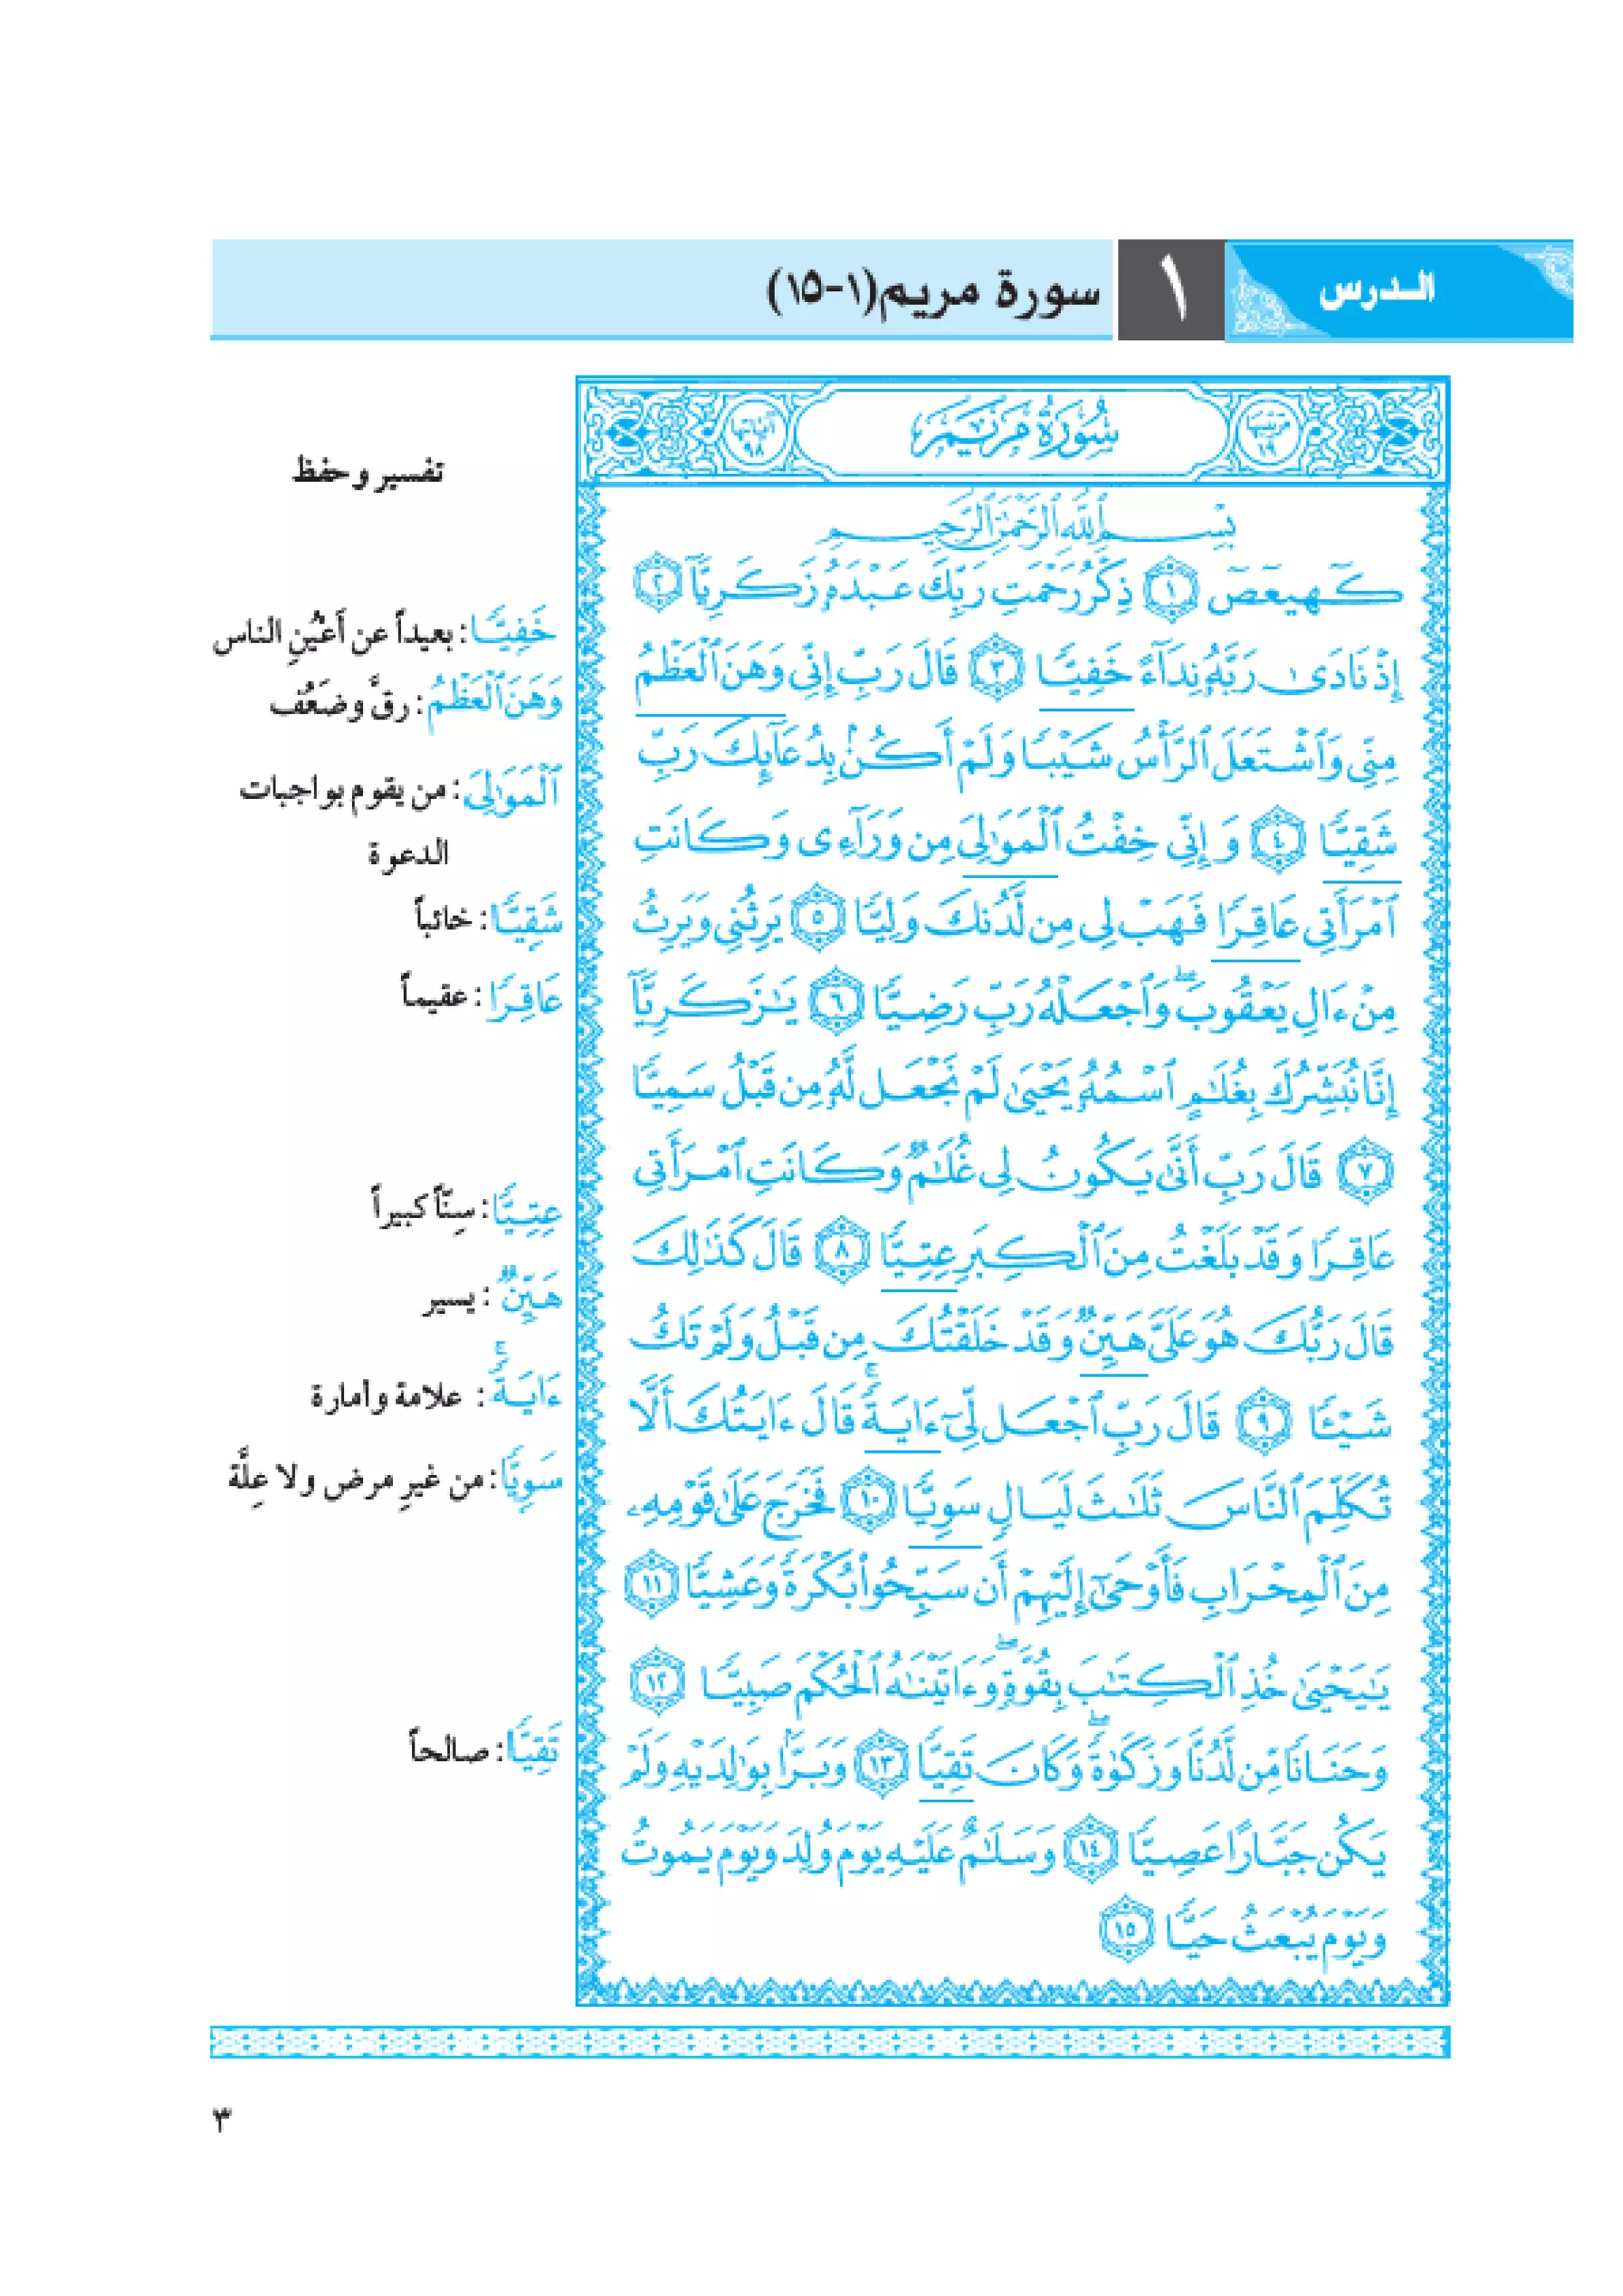 الـدرس ١ سورة مريم(١-١٥)
سُورَةُ مَرْيَمَ
ترتيبها ١٩
آياتها ٩٨
بِسْمِ ٱللَّهِ ٱلرَّحْمَٰنِ ٱلرَّحِيمِ
كٓهيعٓصٓ ١ ذِكْرُ رَحْمَتِ رَبِّكَ عَبْدَهُۥ زَكَرِيَّآ ٢
إِذْ نَادَىٰ رَبَّهُۥ نِدَآءً خَفِيًّا ٣ قَالَ رَبِّ إِنِّى وَهَنَ ٱلْعَظْمُ
مِنِّى وَٱشْتَعَلَ ٱلرَّأْسُ شَيْبًا وَلَمْ أَكُنۢ بِدُعَآئِكَ رَبِّ
شَقِيًّا ٤ وَإِنِّى خِفْتُ ٱلْمَوَٰلِىَ مِن وَرَآءِى وَكَانَتِ
ٱمْرَأَتِى عَاقِرًا فَهَبْ لِى مِن لَّدُنكَ وَلِيًّا ٥ يَرِثُنِى وَيَرِثُ
مِنْ ءَالِ يَعْقُوبَ ۖ وَٱجْعَلْهُ رَبِّ رَضِيًّا ٦ يَٰزَكَرِيَّآ
إِنَّا نُبَشِّرُكَ بِغُلَٰمٍ ٱسْمُهُۥ يَحْيَىٰ لَمْ نَجْعَل لَّهُۥ مِن قَبْلُ سَمِيًّا
٧ قَالَ رَبِّ أَنَّىٰ يَكُونُ لِى غُلَٰمٌ وَكَانَتِ ٱمْرَأَتِى
عَاقِرًا وَقَدْ بَلَغْتُ مِنَ ٱلْكِبَرِ عِتِيًّا ٨ قَالَ كَذَٰلِكَ
قَالَ رَبُّكَ هُوَ عَلَىَّ هَيِّنٌ وَقَدْ خَلَقْتُكَ مِن قَبْلُ وَلَمْ تَكُ
شَيْـًٔا ٩ قَالَ رَبِّ ٱجْعَل لِّىٓ ءَايَةً ۚ قَالَ ءَايَتُكَ أَلَّا
تُكَلِّمَ ٱلنَّاسَ ثَلَٰثَ لَيَالٍ سَوِيًّا ١٠ فَخَرَجَ عَلَىٰ قَوْمِهِۦ
مِنَ ٱلْمِحْرَابِ فَأَوْحَىٰٓ إِلَيْهِمْ أَن سَبِّحُوا۟ بُكْرَةً وَعَشِيًّا ١١
يَٰيَحْيَىٰ خُذِ ٱلْكِتَٰبَ بِقُوَّةٍ ۖ وَءَاتَيْنَٰهُ ٱلْحُكْمَ صَبِيًّا ١٢
وَحَنَانًا مِّن لَّدُنَّا وَزَكَوٰةً ۖ وَكَانَ تَقِيًّا ١٣ وَبَرًّۢا بِوَٰلِدَيْهِ وَلَمْ
يَكُن جَبَّارًا عَصِيًّا ١٤ وَسَلَٰمٌ عَلَيْهِ يَوْمَ وُلِدَ وَيَوْمَ يَمُوتُ
وَيَوْمَ يُبْعَثُ حَيًّا ١٥
تفسير وحفظ
خَفِيًّا : بعيداً عن أَعْيُنِ الناس
وَهَنَ ٱلْعَظْمُ : رقَّ وضَعُف
ٱلْمَوَٰلِىَ : من يقوم بواجبات
الدعوة
شَقِيًّا : خائباً
عَاقِرًا : عقيماً
عِتِيًّا : سِنّاً كبيراً
هَيِّنٌ : يسير
ءَايَةً ۚ : علامة وأمارة
سَوِيًّا : من غيرِ مرض ولا عِلَّة
تَقِيًّا : صالحاً
٣